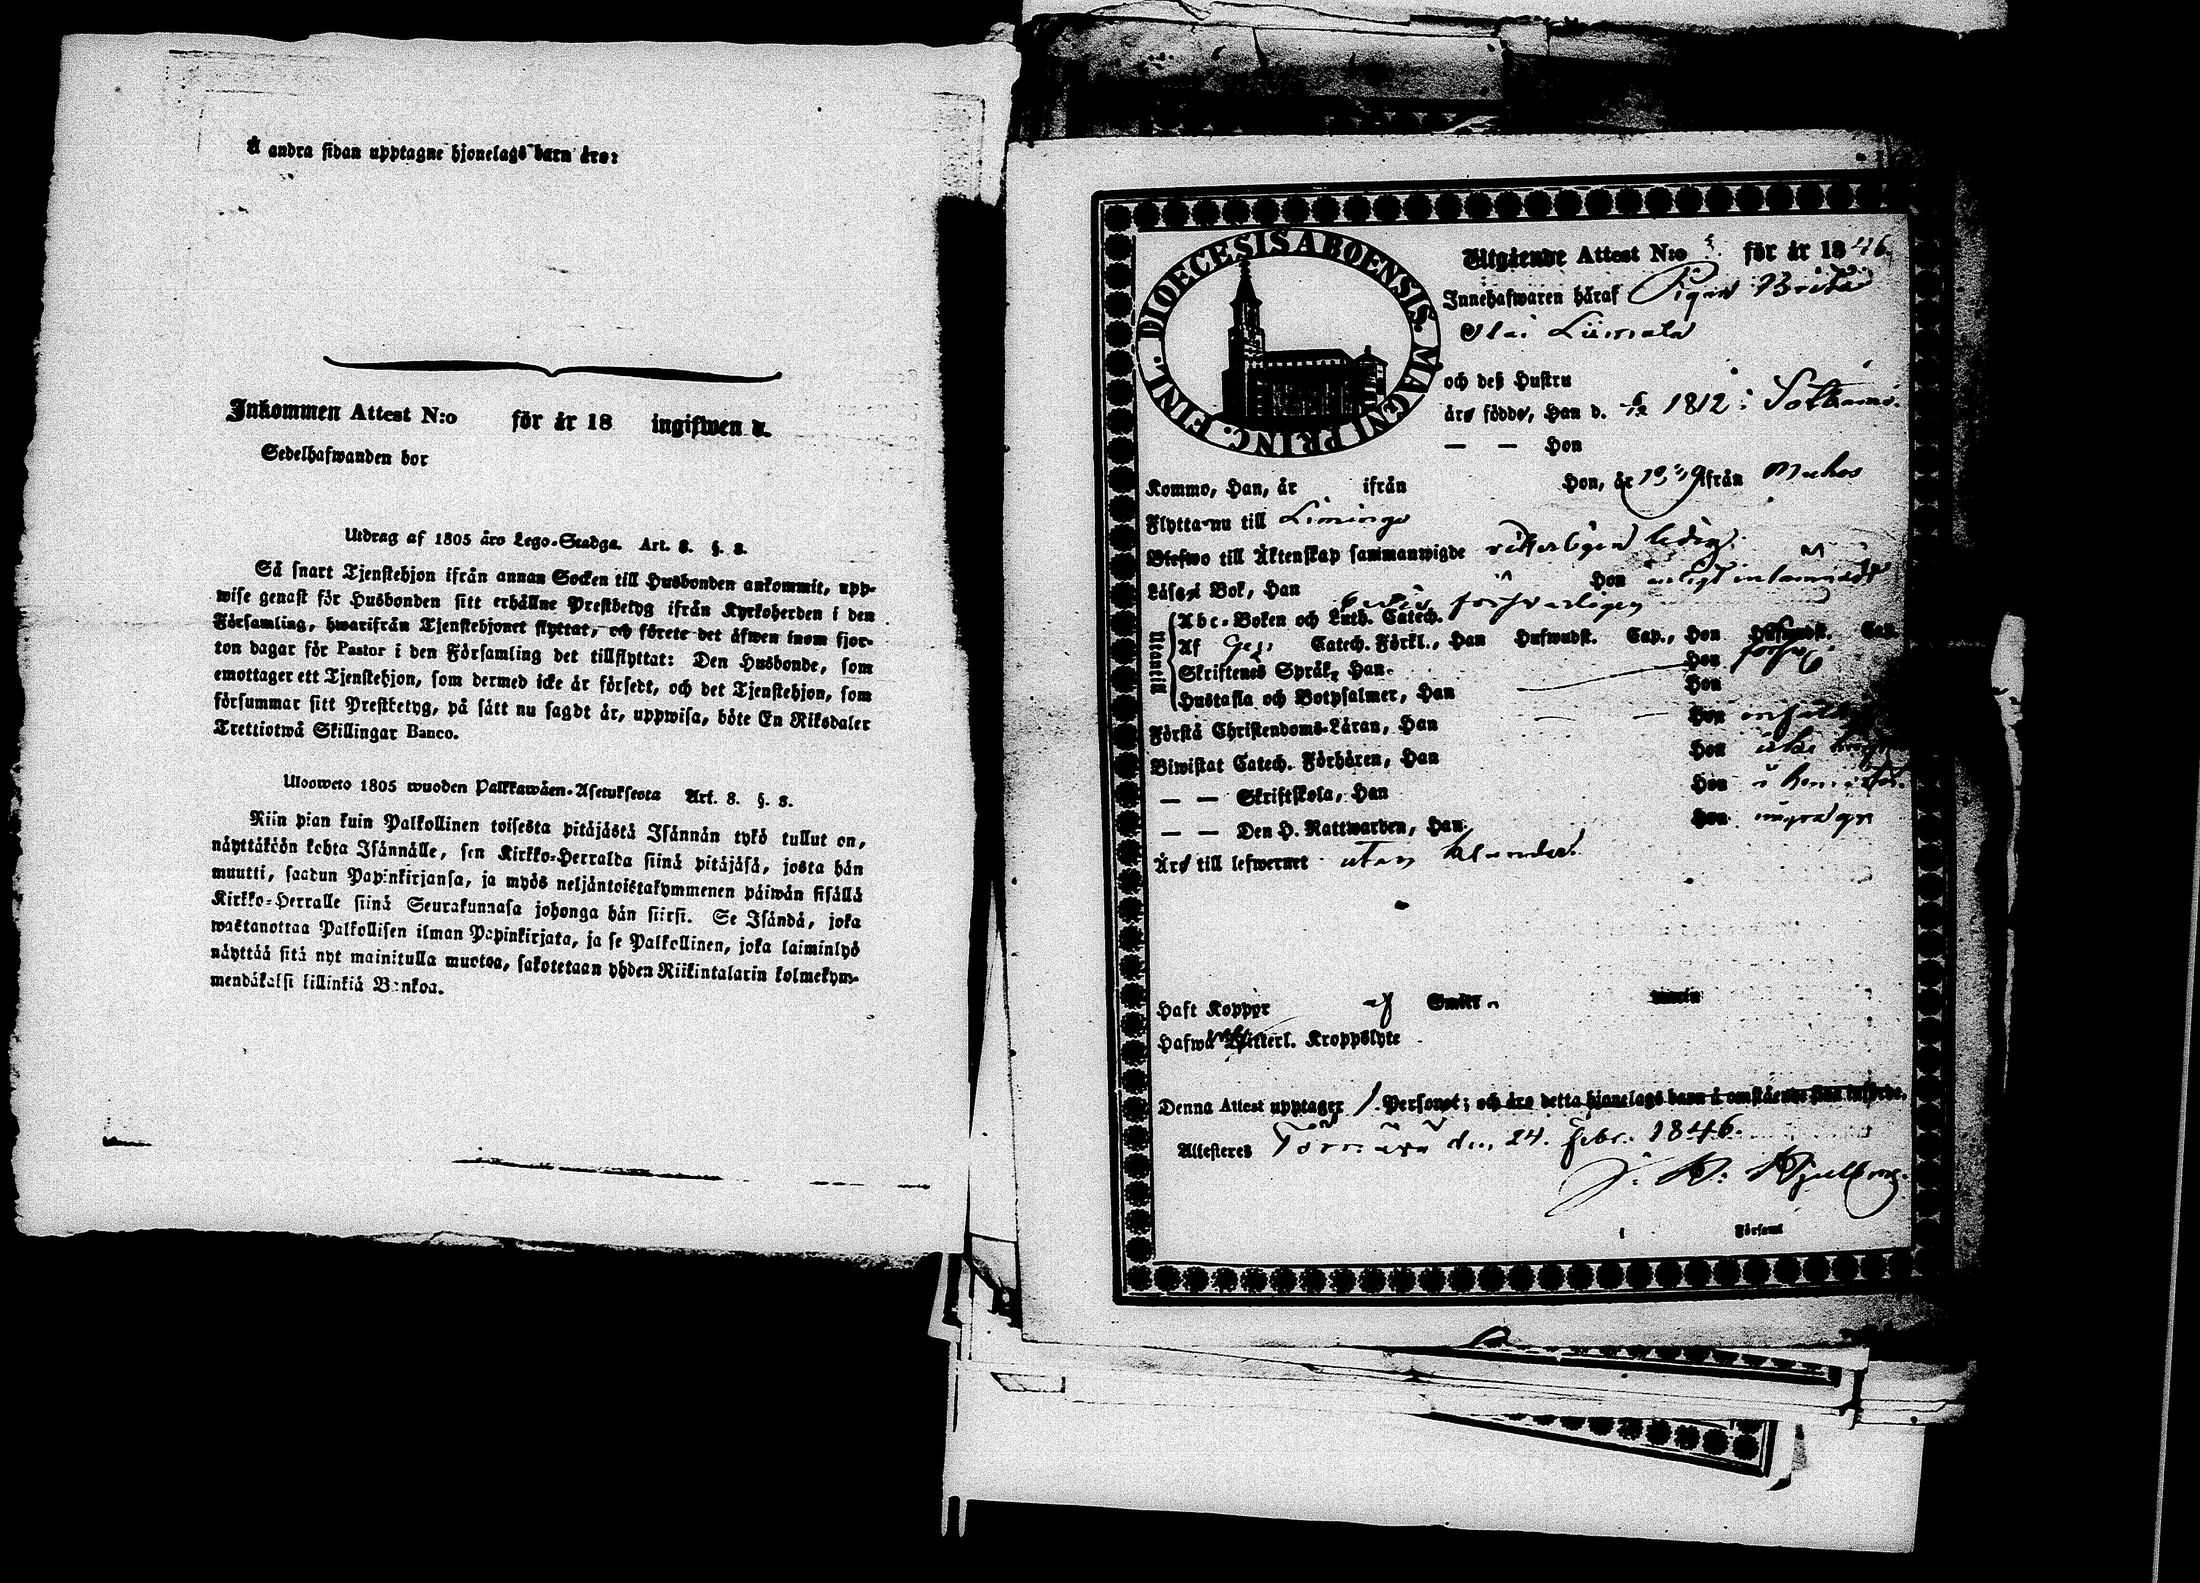 Å andra sidan upptagne hjonelags barn äro:
Inkommen Attest N:o för år 18 ingifwen d.
Sedelhafwanden bor
Utdrag af 1805 års Lego-Stadga. Art. 8. §. 8.
Så snart Tjenstehjon ifrån annan Socken till Husbonden ankommit, upp-
wise genast för Husbonden sitt erhållne Prestbetyg ifrån Kyrkoherden i den
Församling, hwarifrån Tjenstehjonet flyttat, och förete det äfwen inom fjor-
ton dagar för Pastor i den Församling det tillflyttat: Den Husbonde, som
emottager ett Tjenstehjon, som dermed icke är försedt, och det Tjenstehjon, som
försummar sitt Prestbetyg, på sätt nu sagdt är, uppwisa, böte En Riksdaler
Trettiotwå Skillingar Banco.
Ulosweto 1805 wuoden Palkkawäen-Asetuksesta Art. 8. §. 8.
Niin pian kuin Palkollinen toisesta pitäjästä Isännän tykö tullut on,
näyttäköön kohta Isännälle, sen Kirkko-Herralda siinä pitäjäsä, josta hän
muutti, saadun Papinkirjansa, ja myös neljäntoistakymmenen päiwän sisällä
Kirkko-Herralle siinä Seurakunnasa johonga hän siirsi. Se Isändä, joka
wastanottaa Palkollisen ilman Papinkirjata, ja se Palkollinen, joka laiminlyö
näyttää sitä nyt mainitulla muotoa, sakotetaan yhden Riikintalarin kolmekym-
mendäkaksi killinkiä Bankoa.
DIOECESIS ABOENSIS. MAGNI PRINC. FINL.
Utgående Attest N:o för år 1846.
Innehafwaren häraf Pigan Brita
Liimala
och dess Hustru
äro födde, Han d. 6/12 1812 i Sotkamo.
— — Hon
Komne, Han, år ifrån Hon, år ifrån Muhos
Flytta nu till Limingo
Blefwo till Äktenskap sammanwigde ledig.
Läsa i Bok, Han Hon
Utantill
Abc-Boken och Luth. Catech. försvarligen
Af Catech. Förkl., Han Hufwudst. Cap., Hon Hufwudst. Cap.
Skriftenes Språk, Han Hon
Hustafla och Botpsalmer, Han Hon
Förstå Christendoms-Läran, Han — — Hon
Biwistat Catech. Förhören, Han Hon
— — Skriftskola, Han Hon
— — Den H. Nattwarden, Han Hon
Äro till lefwernet utan klander.
Haft Koppor af Smitt
Hafwa Witterl. Kroppslyte
Denna Attest upptager 1. Personer; och äro detta hjonelags barn å omstående sida införde.
Attesteres den 24. Febr. 1846.
Församl